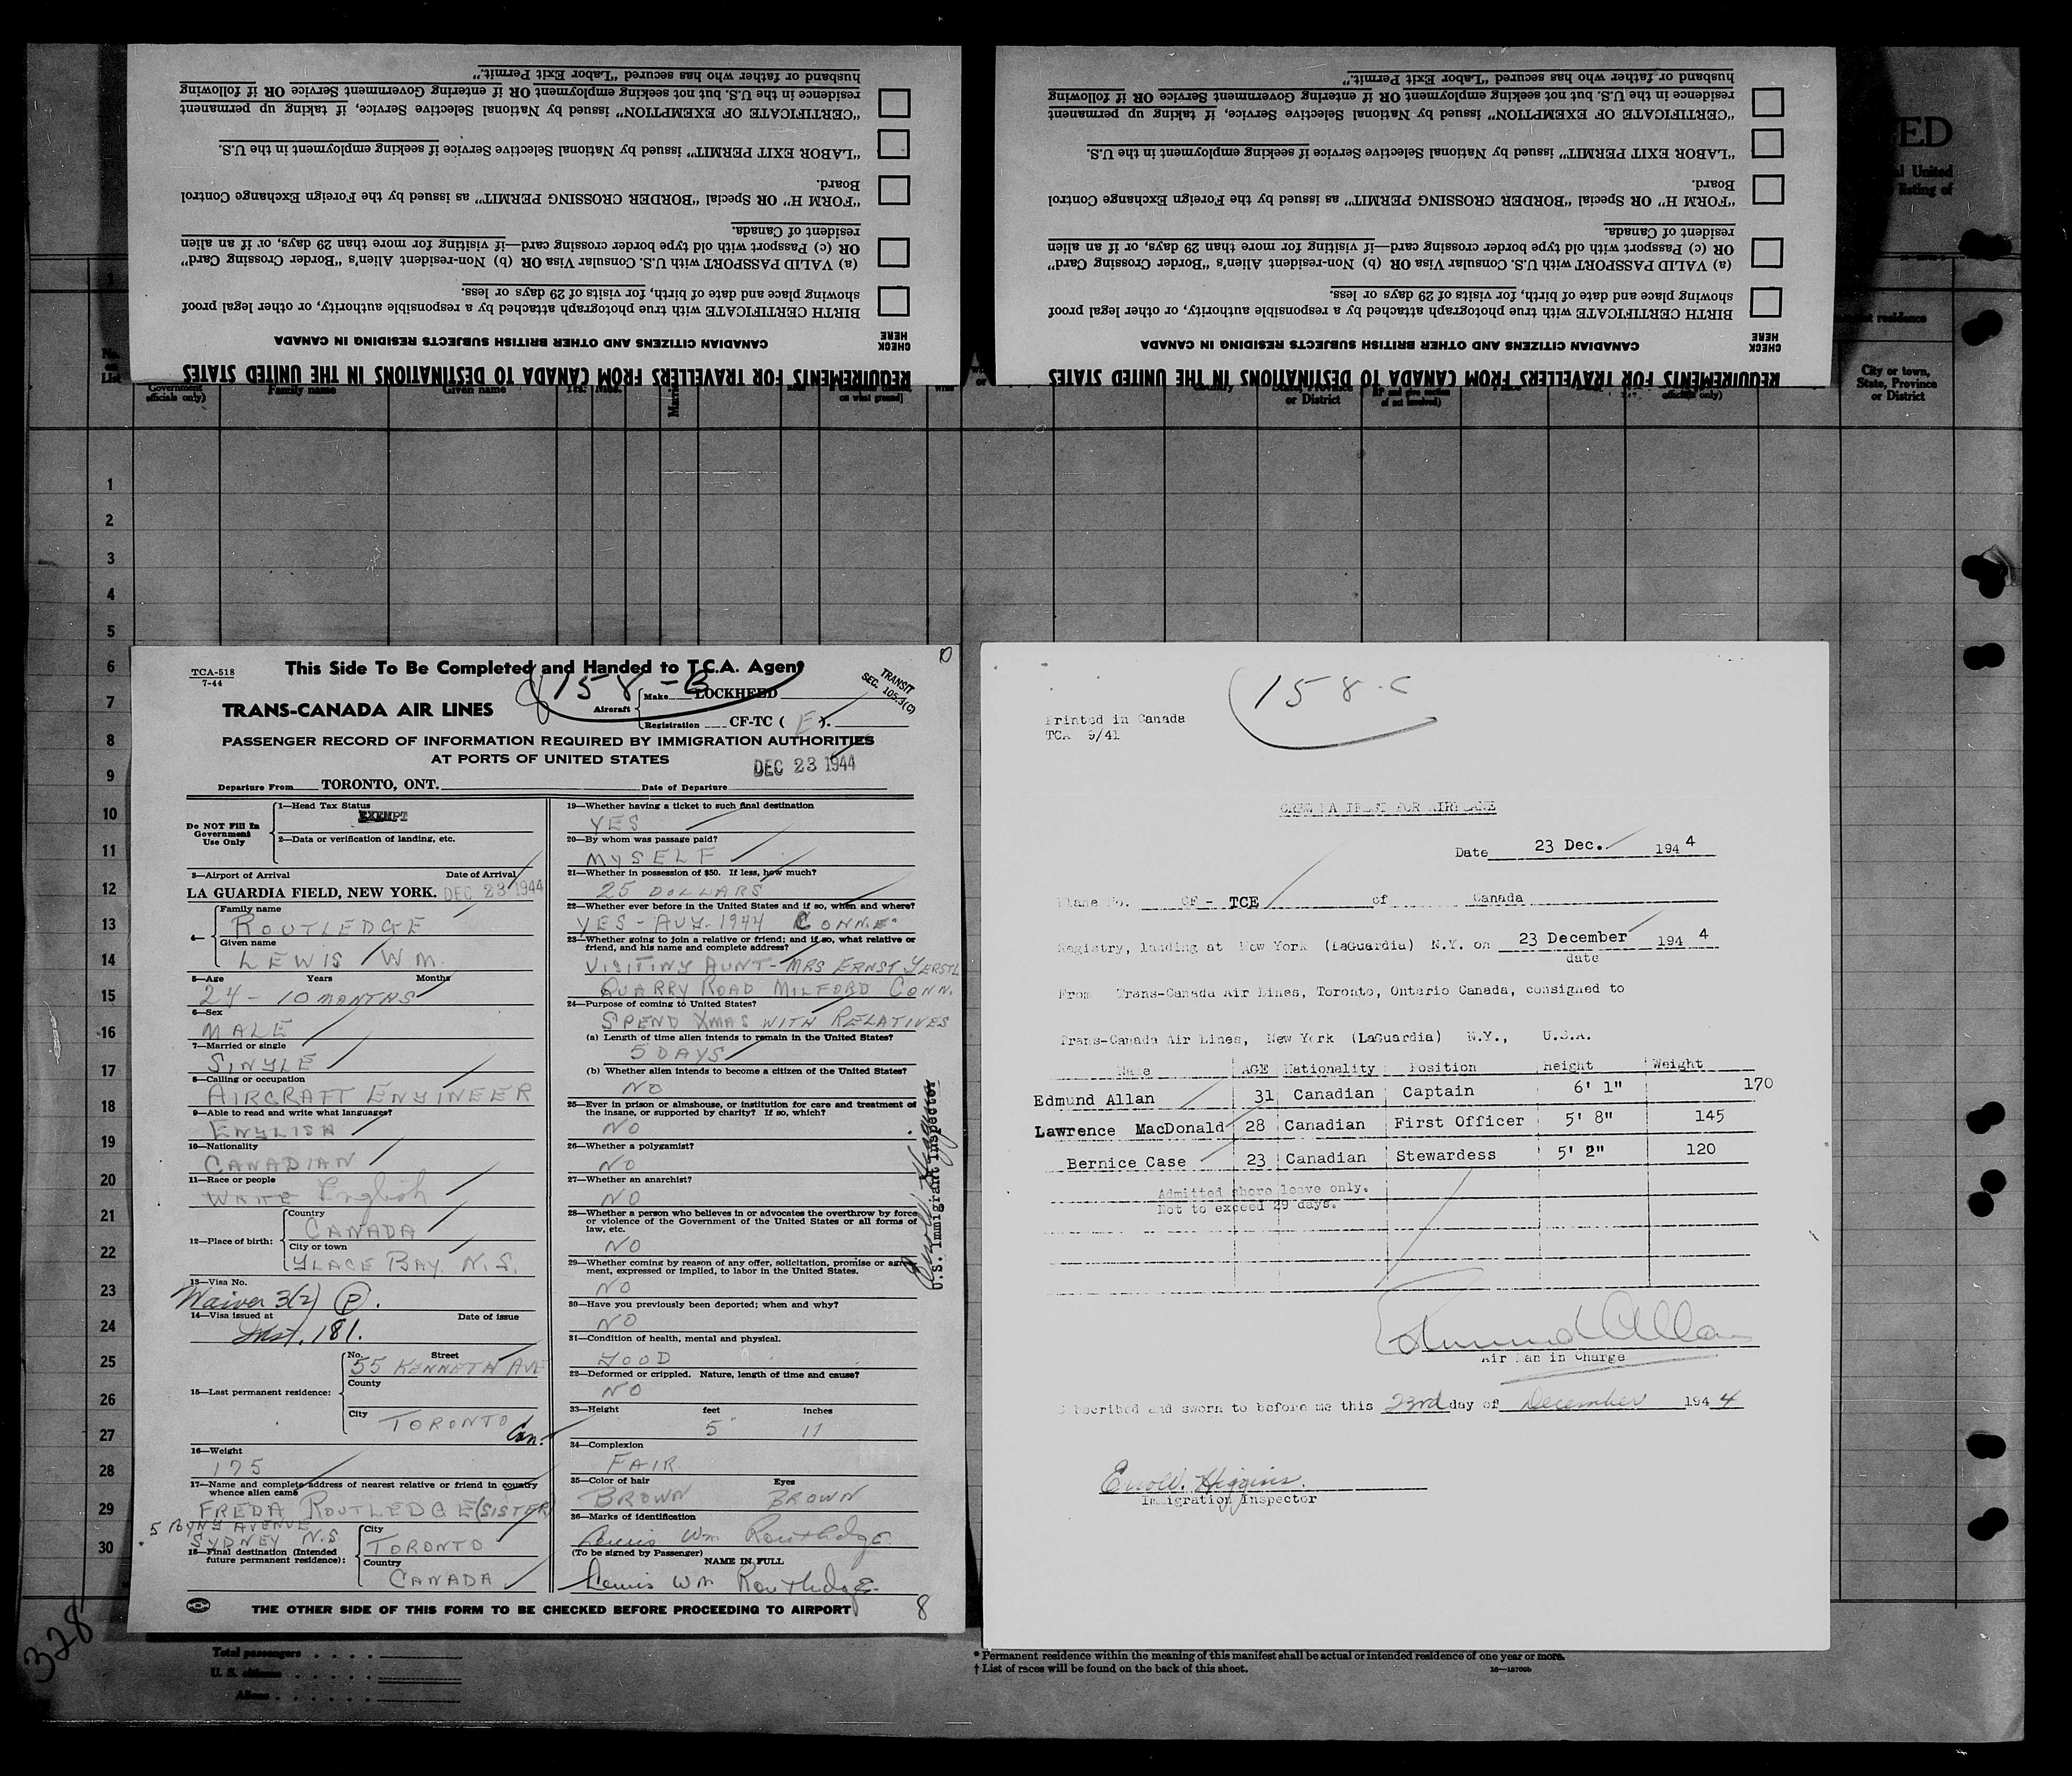 REQUIREMENTS FOR TRAVELLERS FROM CANADA TO DESTINATIONS IN THE UNITED STATES
CHECK HERE
CANADIAN CITIZENS AND OTHER BRITISH SUBJECTS RESIDING IN CANADA
BIRTH CERTIFICATE with true photograph attached by a responsible authority, or other legal proof
showing place and date of birth, for visits of 29 days or less.
(a) VALID PASSPORT with U.S. Consular Visa OR (b) Non-resident Alien's "Border Crossing Card"
OR (c) Passport with old type border crossing card—if visiting for more than 29 days, or if an alien
resident of Canada.
"FORM H" OR Special "BORDER CROSSING PERMIT" as issued by the Foreign Exchange Control
Board.
"LABOR EXIT PERMIT" issued by National Selective Service if seeking employment in the U.S.
"CERTIFICATE OF EXEMPTION" issued by National Selective Service, if taking up permanent
residence in the U.S. but not seeking employment OR if entering Government Service OR if following
husband or father who has secured "Labor Exit Permit."
REQUIREMENTS FOR TRAVELLERS FROM CANADA TO DESTINATIONS IN THE UNITED STATES
CHECK HERE
CANADIAN CITIZENS AND OTHER BRITISH SUBJECTS RESIDING IN CANADA
BIRTH CERTIFICATE with true photograph attached by a responsible authority, or other legal proof
showing place and date of birth, for visits of 29 days or less.
(a) VALID PASSPORT with U.S. Consular Visa OR (b) Non-resident Alien's "Border Crossing Card"
OR (c) Passport with old type border crossing card—if visiting for more than 29 days, or if an alien
resident of Canada.
"FORM H" OR Special "BORDER CROSSING PERMIT" as issued by the Foreign Exchange Control
Board.
"LABOR EXIT PERMIT" issued by National Selective Service if seeking employment in the U.S.
"CERTIFICATE OF EXEMPTION" issued by National Selective Service, if taking up permanent
residence in the U.S. but not seeking employment OR if entering Government Service OR if following
husband or father who has secured "Labor Exit Permit."
ED
United
listing of
residence
City or town,
State, Province
or District
Government
officials only)
Family name
Given name
Yrs. Mos.
on what ground]
or District
officials only)
1
2
3
4
5
6
7
8
9
10
11
12
13
14
15
16
17
18
19
20
21
22
23
24
25
26
27
28
29
30
TCA-518
7-44
This Side To Be Completed and Handed to T.C.A. Agent
158-B
TRANSIT
SEC. 105.3(C)
TRANS-CANADA AIR LINES
Aircraft
Make LOCKHEED
Registration CF-TC ( E ).
PASSENGER RECORD OF INFORMATION REQUIRED BY IMMIGRATION AUTHORITIES
AT PORTS OF UNITED STATES
DEC 23 1944
Departure From TORONTO, ONT. Date of Departure
Do NOT Fill In
Government
Use Only
1—Head Tax Status
EXEMPT
2—Data or verification of landing, etc.
3—Airport of Arrival Date of Arrival
LA GUARDIA FIELD, NEW YORK. DEC 23 1944
4—
Family name
ROUTLEDGE
Given name
LEWIS WM.
5—Age Years Months
24 - 10 MONTHS
6—Sex
MALE
7—Married or single
SINGLE
8—Calling or occupation
AIRCRAFT ENGINEER
9—Able to read and write what languages?
ENGLISH
10—Nationality
CANADIAN
11—Race or people
English
12—Place of birth:
Country
CANADA
City or town
GLACE BAY. N.S.
13—Visa No.
Waiver 3(2) P.
14—Visa issued at Date of issue
Inst. 181.
15—Last permanent residence:
No. Street
55 KENNETH AVE
County
City
TORONTO Can.
16—Weight
175
17—Name and complete address of nearest relative or friend in country
whence alien came
FREDA ROUTLEDGE (SISTER)
AVENUE
SYDNEY N.S.
18—Final destination (Intended
future permanent residence):
City
TORONTO
Country
CANADA
19—Whether having a ticket to such final destination
YES
20—By whom was passage paid?
MYSELF
21—Whether in possession of $50. If less, how much?
25 DOLLARS
22—Whether ever before in the United States and if so, when and where?
YES - AUG. 1944 CONNE.
23—Whether going to join a relative or friend; and if so, what relative or
friend, and his name and complete address?
VISITING AUNT - MRS ERNST
QUARRY ROAD MILFORD CONN.
24—Purpose of coming to United States?
SPEND XMAS WITH RELATIVES
(a) Length of time alien intends to remain in the United States?
5 DAYS
(b) Whether alien intends to become a citizen of the United States?
NO
25—Ever in prison or almshouse, or institution for care and treatment of
the insane, or supported by charity? If so, which?
NO
26—Whether a polygamist?
NO
27—Whether an anarchist?
NO
28—Whether a person who believes in or advocates the overthrow by force
or violence of the Government of the United States or all forms of
law, etc.
NO
29—Whether coming by reason of any offer, solicitation, promise or agree-
ment, expressed or implied, to labor in the United States.
NO
30—Have you previously been deported; when and why?
NO
31—Condition of health, mental and physical.
GOOD
22—Deformed or crippled. Nature, length of time and cause?
NO
33—Height feet inches
5 11
34—Complexion
FAIR
35—Color of hair Eyes
BROWN BROWN
36—Marks of identification
Lewis Wm Routledge
(To be signed by Passenger)
NAME IN FULL
Lewis Wm Routledge
U.S. Immigrant Inspector
THE OTHER SIDE OF THIS FORM TO BE CHECKED BEFORE PROCEEDING TO AIRPORT
8
328
158-C
Printed in Canada
TCA 9/41
CREW MANIFEST FOR AIRPLANE
Date 23 Dec. 194 4
Plane No. CF - TCE of Canada
Registry, landing at New York (LaGuardia) N.Y. on 23 December 194 4
date
From Trans-Canada Air Lines, Toronto, Ontario Canada, consigned to
Trans-Canada Air Lines, New York (LaGuardia) N.Y., U.S.A.
Name AGE Nationality Position Height Weight
Edmund Allan 31 Canadian Captain 6' 1" 170
Lawrence MacDonald 28 Canadian First Officer 5' 8" 145
Bernice Case 23 Canadian Stewardess 5' 2" 120
Admitted shore leave only.
Not to exceed 29 days.
Edmund Allan
Air Man in Charge
Subscribed and sworn to before me this 23rd day of December 194 4
Errol W. Higgins
Immigration Inspector
Total passengers
U. S. citizens
Aliens
* Permanent residence within the meaning of this manifest shall be actual or intended residence of one year or more.
† List of races will be found on the back of this sheet.
16—18709b